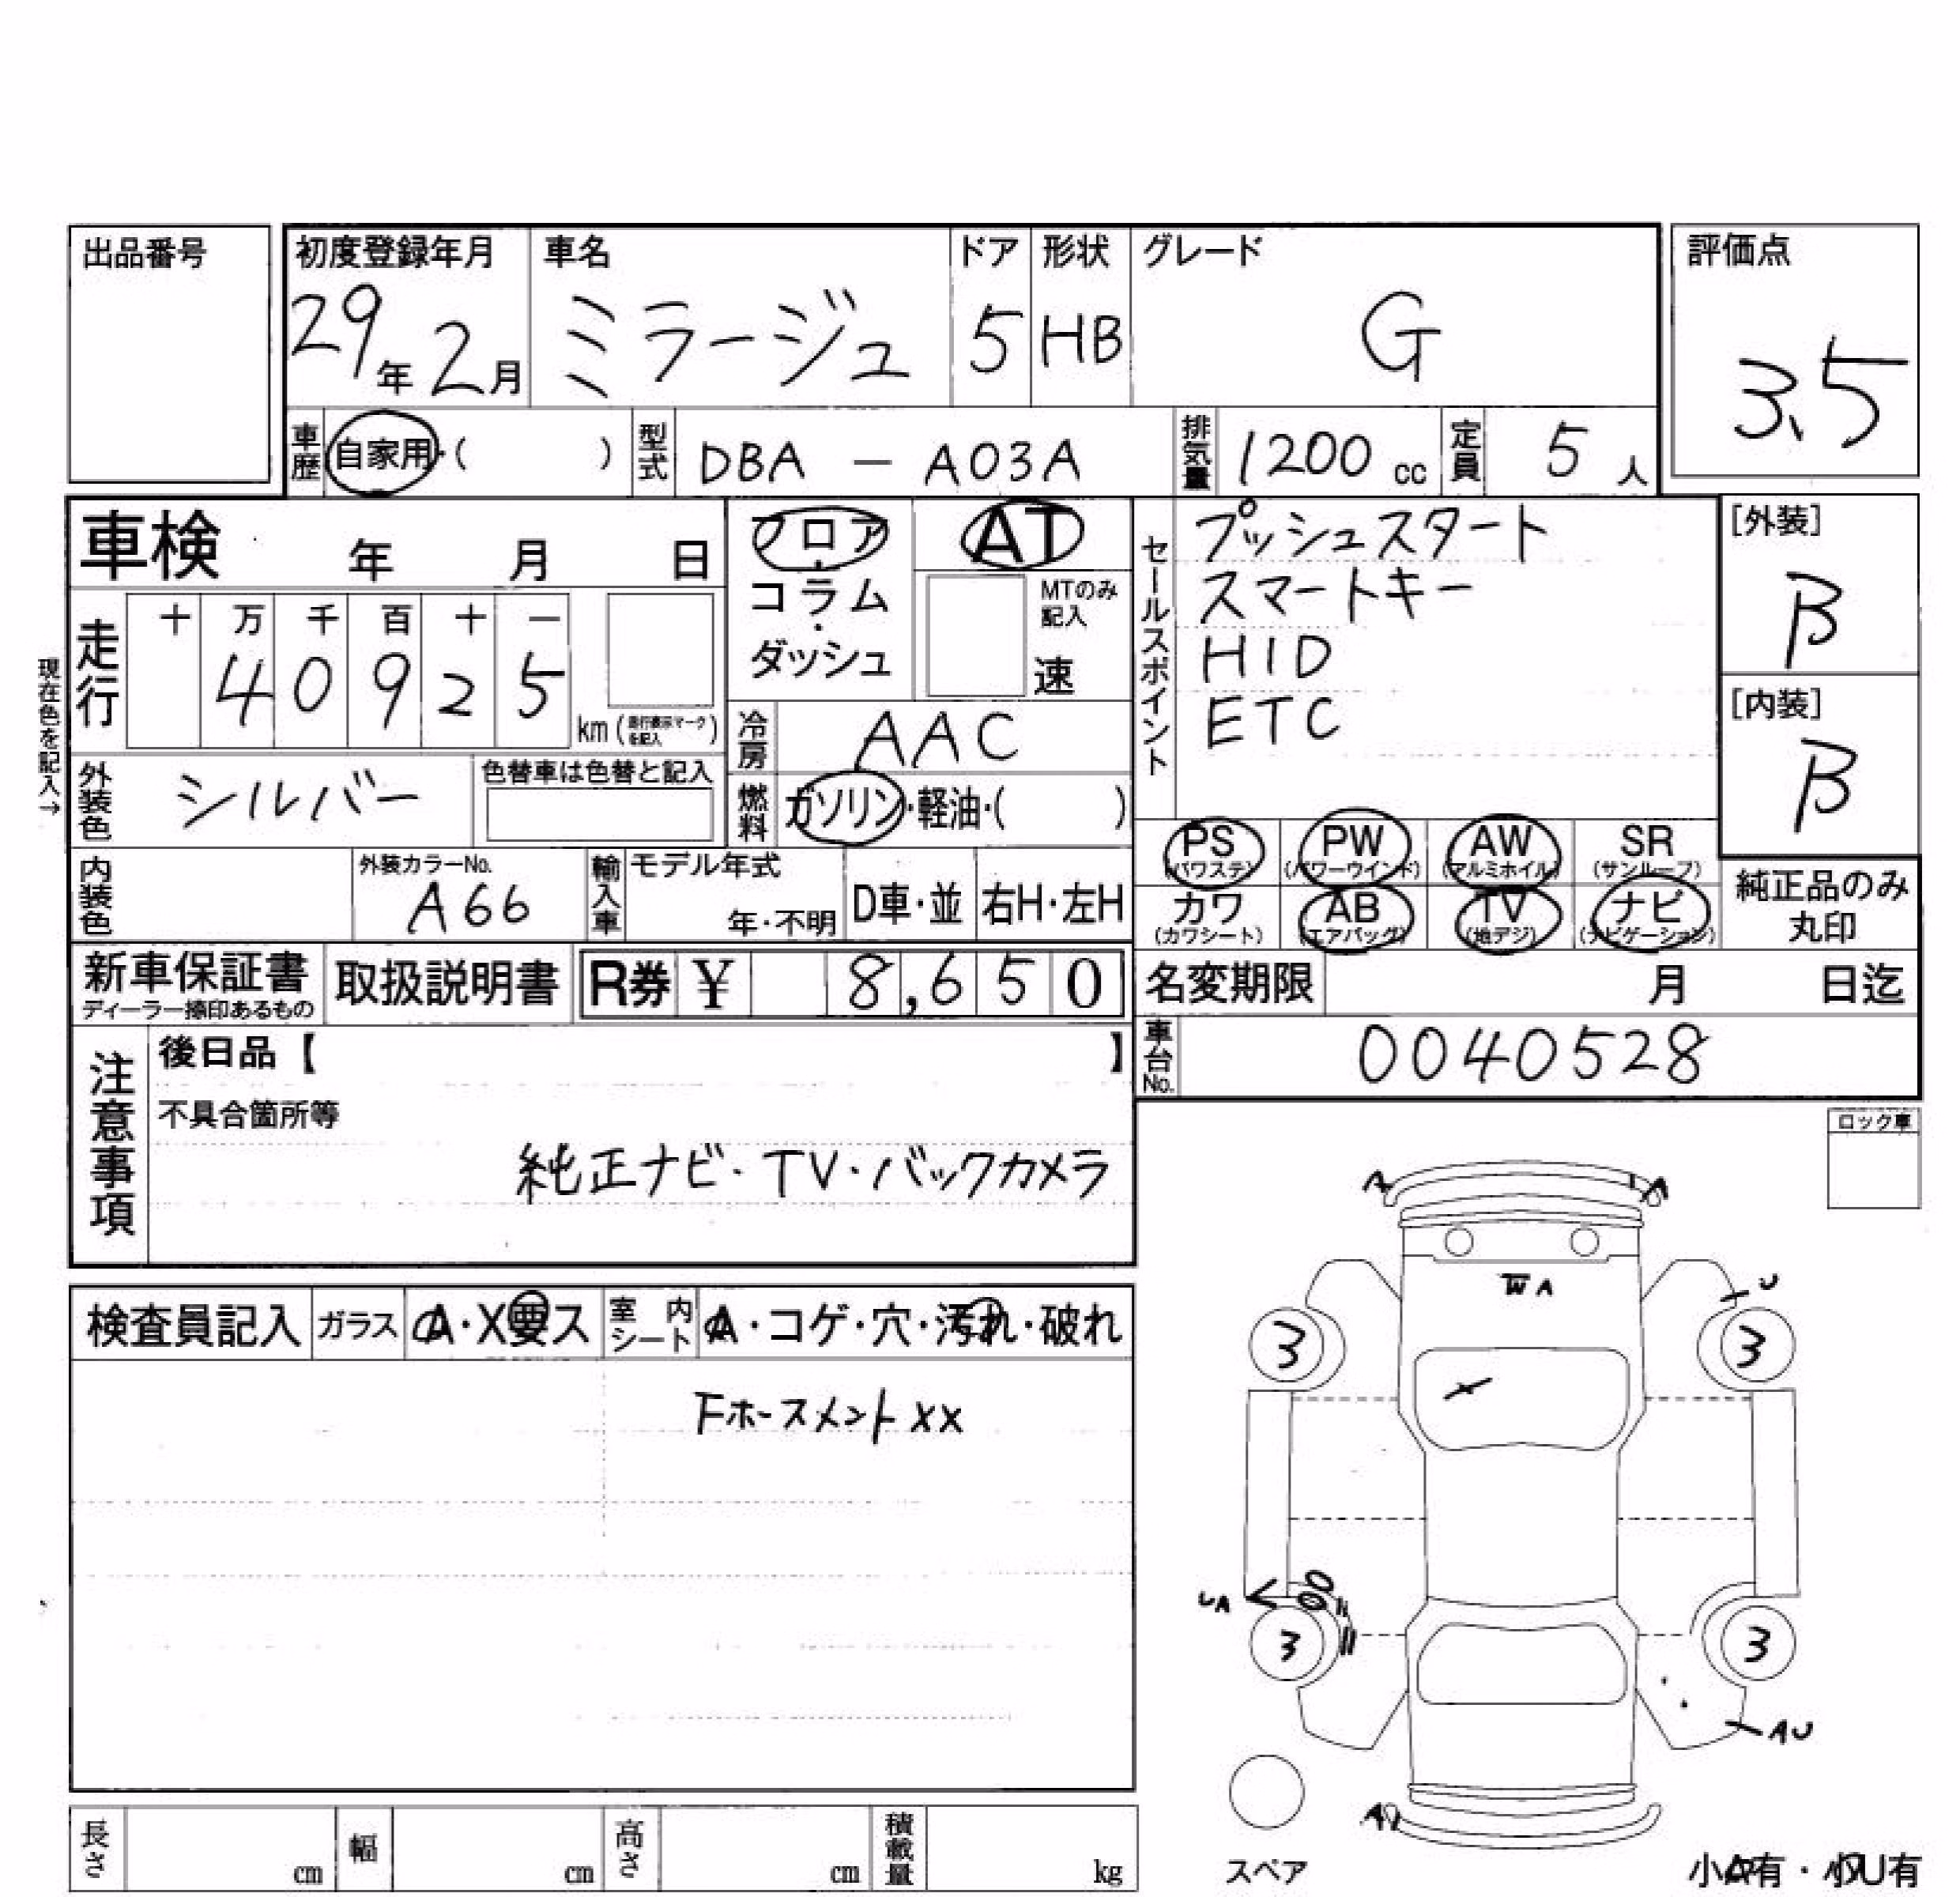 出品番号
初度登録年月 車名 ドア 形状 グレード 評価点
29年 2月 ミラージュ 5 HB G 3.5
車歴 自家用・( ) 型式 DBA - A03A 排気量 1200 cc 定員 5 人
車検 年 月 日
フロア・コラム・ダッシュ
AT
MTのみ記入
速
セールスポイント
プッシュスタート
スマートキー
HID
ETC
[外装]
B
[内装]
B
現在色を記入→
走行 十 万 千 百 十 一
4 0 9 2 5
km (走行表示マークを記入)
冷房 AAC
外装色 シルバー 色替車は色替と記入
燃料 ガソリン・軽油・( )
PS (パワステ) PW (パワーウインド) AW (アルミホイル) SR (サンルーフ)
カワ (カワシート) AB (エアバッグ) TV (地デジ) ナビ (ナビゲーション)
純正品のみ丸印
内装色 外装カラーNo. A66 輸入車 モデル年式 年・不明 D車・並 右H・左H
新車保証書 取扱説明書 R券 ¥ 8,650
ディーラー捺印あるもの
名変期限 月 日迄
車台No. 0040528
注意事項
後日品【 】
不具合箇所等
純正ナビ・TV・バックカメラ
ロック車
検査員記入 ガラス A・X要ス 室内シート A・コゲ・穴・汚れ・破れ
Fホースメント XX
A A
W A
U
3 3
X
UA
3 3
AU
A
スペア
小A有・小U有
長さ cm 幅 cm 高さ cm 積載量 kg